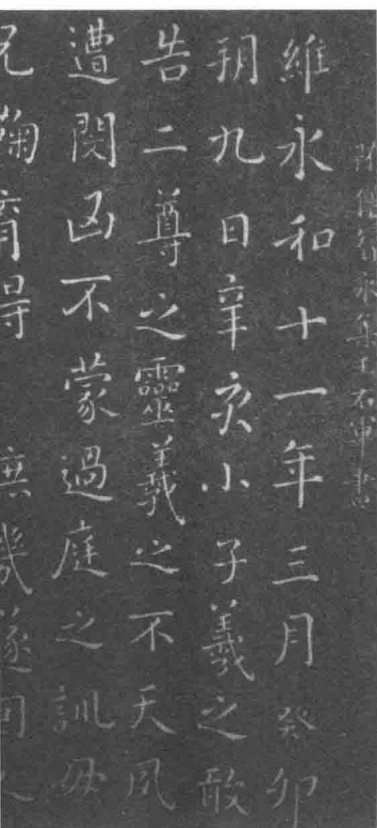 隋僧智永集王右軍書
維永和十一年三月癸卯
朔九日辛亥小子羲之敢
告二尊之靈羲之不天夙
遭閔凶不蒙過庭之訓母
兄鞠育得庶幾遂因人